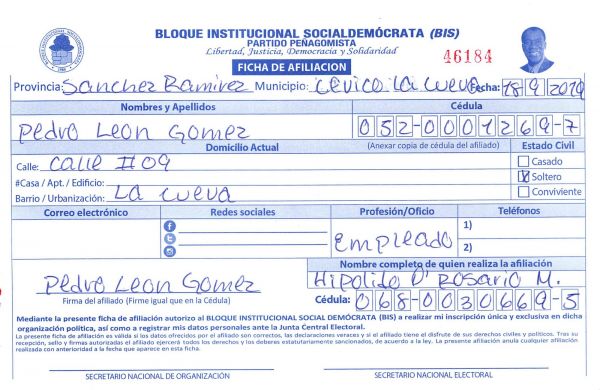 BLOQUE INSTITUCIONAL SOCIALDEMÓCRATA (BIS)
PARTIDO PEÑAGOMISTA
Libertad, Justicia, Democracia y Solidaridad
46184
FICHA DE AFILIACION
Provincia: Sanchez Ramirez Municipio: Cevico La Cueva Fecha: 18 9 2019
Nombres y Apellidos Cédula
Pedro Leon Gomez 052-0001269-7
Domicilio Actual (Anexar copia de cédula del afiliado) Estado Civil
Calle: Calle #09 Casado
#Casa / Apt. / Edificio: Soltero
Barrio / Urbanización: La Cueva Conviviente
Correo electrónico Redes sociales Profesión/Oficio Teléfonos
1)
Empleado 2)
Nombre completo de quien realiza la afiliación
Pedro Leon Gomez Hipolito D' Rosario M.
Firma del afiliado (Firme igual que en la Cédula) Cédula: 068-0030669-5
Mediante la presente ficha de afiliación autorizo al BLOQUE INSTITUCIONAL SOCIAL DEMÓCRATA (BIS) a realizar mi inscripción única y exclusiva en dicha
organización política, así como a registrar mis datos personales ante la Junta Central Electoral.
La presente ficha de afiliación es válida si los datos ofrecidos por el afiliado son correctos, las declaraciones veraces y si el afiliado tiene el disfrute de sus derechos civiles y políticos. Tras su
recepción, sello y firmas autorizadas el afiliado ejercerá todos los derechos y los deberes estatutariamente sancionados, de acuerdo a la ley. La presente afiliación anula cualquier afiliación
realizada con anterioridad a la fecha que aparece en esta ficha.
SECRETARIO NACIONAL DE ORGANIZACIÓN SECRETARIO NACIONAL ELECTORAL